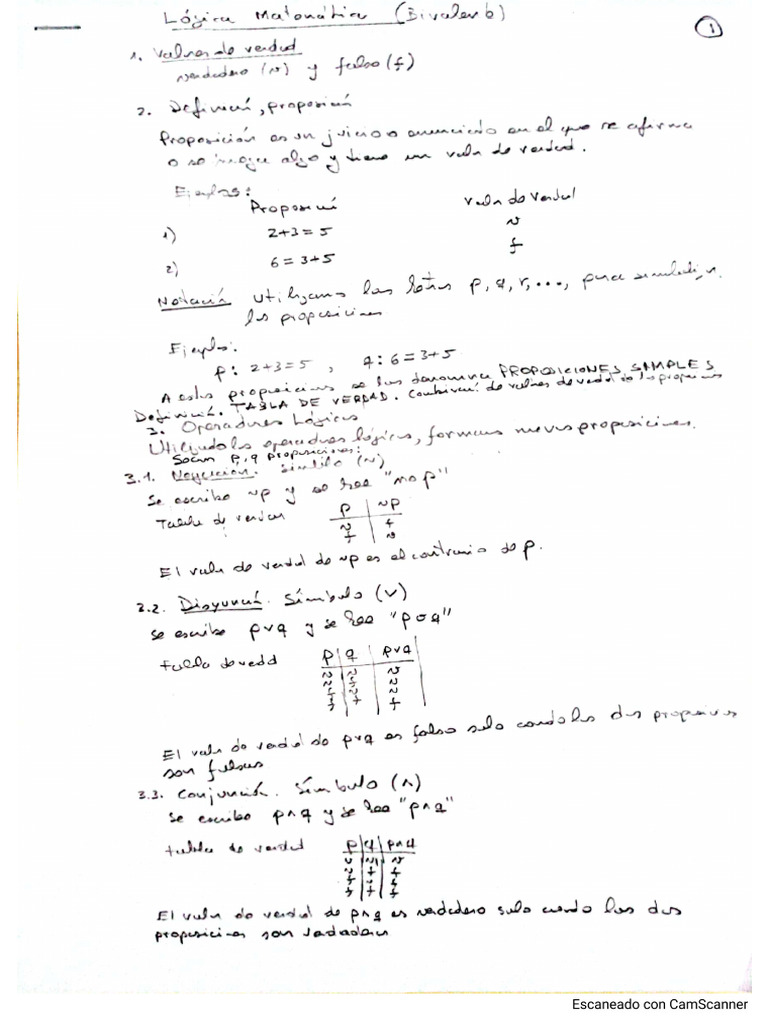 Lógica Matemática (Bivalente)
1
1. Valores de verdad
verdadero (v) y falso (f)
2. Definición, proposición
Proposición es un juicio o enunciado en el que se afirma
o se niega algo y tiene un valor de verdad.
Ejemplos:
Proposición Valor de Verdad
1) 2+3=5 v
2) 6=3+5 f
Notación Utilizamos las letras p, q, r, ..., para simbolizar
las proposiciones
Ejemplo:
p: 2+3=5, q: 6=3+5
A estas proposiciones se las denomina PROPOSICIONES SIMPLES
Definición. TABLA DE VERDAD. de valores de verdad de las proposiciones
3. Operadores Lógicos
Utilizando los operadores lógicos, formamos nuevas proposiciones.
Sean p, q proposiciones:
3.1. Negación. Símbolo (~)
Se escribe ~p y se lee "no p"
Tabla de verdad
p ~p
v f
f v
El valor de verdad de ~p es el contrario de p.
3.2. Disyunción. Símbolo (∨)
Se escribe p∨q y se lee "p o q"
tabla de verdad
p q p∨q
v v v
v f v
f v v
f f f
El valor de verdad de p∨q es falso solo cuando las dos proposiciones
son falsas
3.3. Conjunción. Símbolo (∧)
Se escribe p∧q y se lee "p∧q"
tabla de verdad
p q p∧q
v v v
v f f
f v f
f f f
El valor de verdad de p∧q es verdadero solo cuando las dos
proposiciones son verdaderas
Escaneado con CamScanner